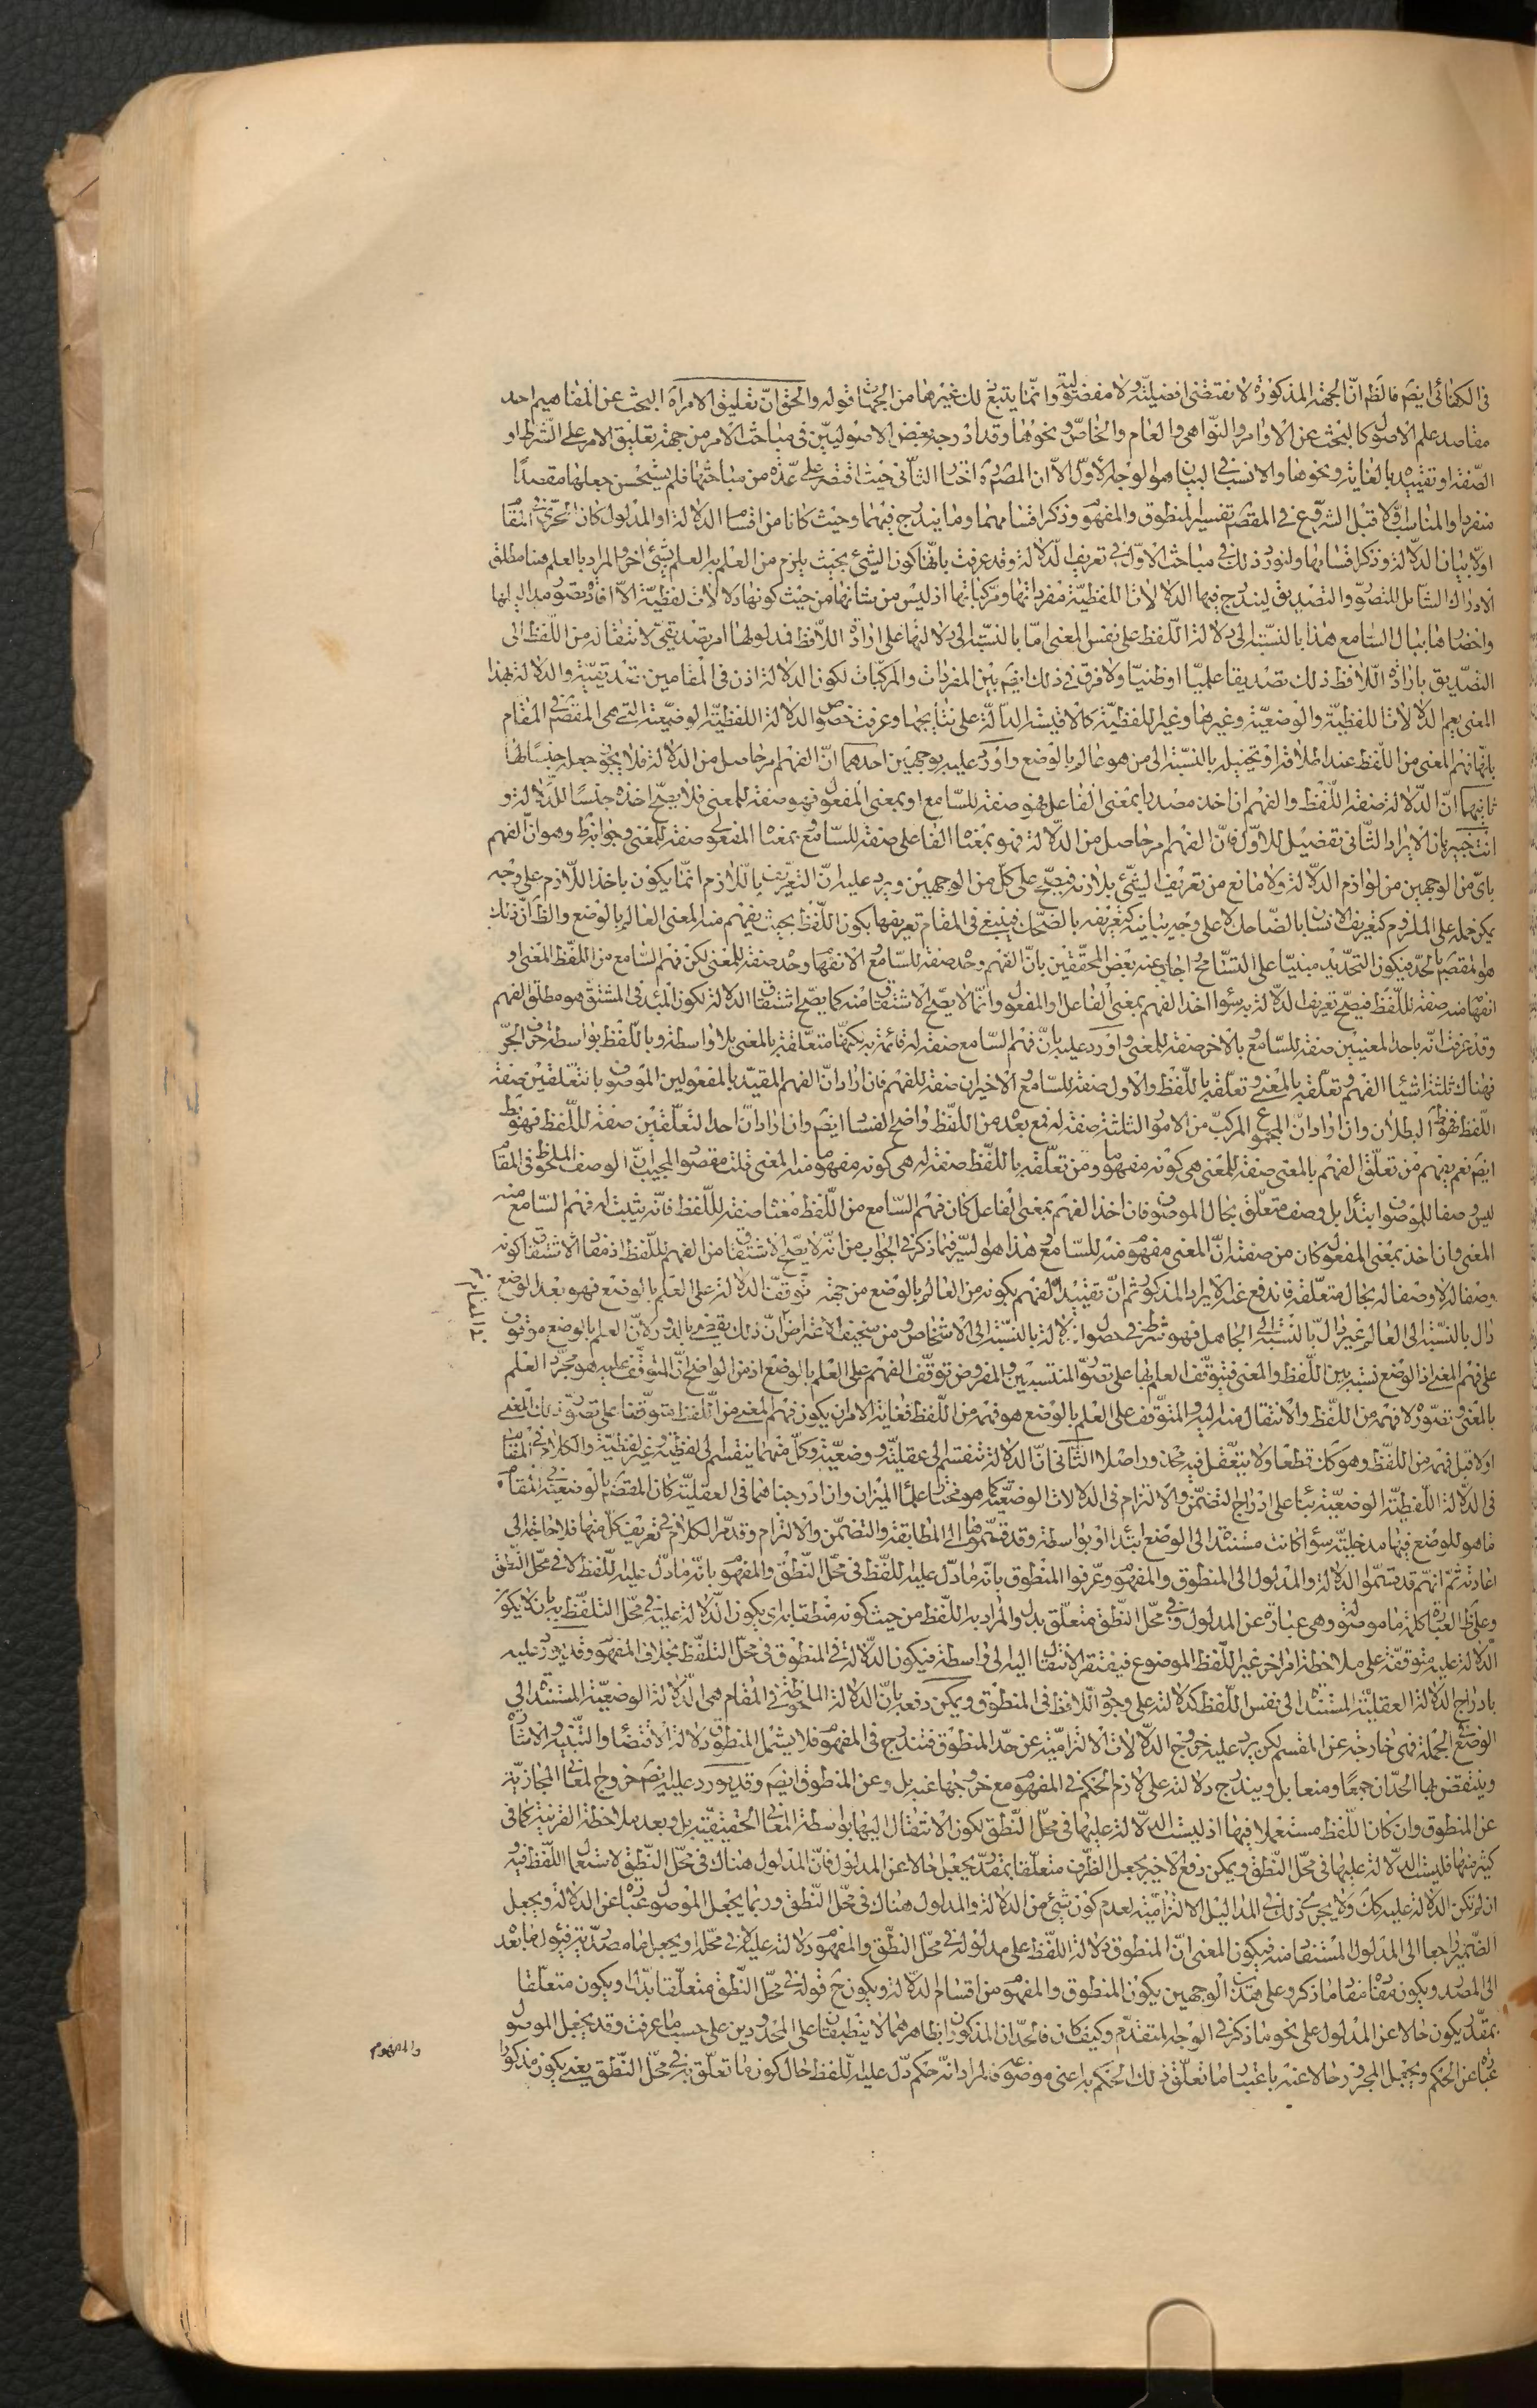 فى الكفائى ايضَم فالظم انّ الجهة المذكورة لا تقتضى افضليّته ولا مفضوليّته وانّما يتبع ذلك غيرها من الجهات قوله والحق انّ تعليق الامر اه البحث عن المفاهيم احد
مقاصد علم الاصول كالبحث عن الاوامر والنّواهى والعام والخاصّ ونحوها وقد ادرجه بعض الاصوليّين فى مباحث الامر من جهة تعليق الامر على الشّرط او
الصّفة او تقييده بالغاية ونحوها والانسب فى البيان هو الوجه الاوّل الّا ان المصَره اختار الثّانى حيث اقتصر على عدّة من مباحثها فلم يستحسن جعلها مقصدًا
منفردا والمناسب اوّلا قبل الشّروع فى المقصَم تفسير المنطوق والمفهوم وذكر اقسامهما وما يندرج فيهما وحيث كانا من اقسام الدّلالة او المدلول كان الحرىّ فى المقام
اوّلا بيان الدّلالة وذكر اقسامها ولنورد ذلك فى مباحث الاوّل فى تعريف الدّلالة وقد عرفت بانّها كون الشّىء بحيث يلزم من العلم به العلم بشىء اخر والمراد بالعلم هنا مطلق
الادراك الشّامل للتصوّر والتّصديق ليندرج فيها الدلالات اللفظيّة مفرداتها ومركّباتها اذ ليس من شانها من حيث كونها دلالات لفظيّة الّا افادة تصوّر مداليلها
واحضارها ببال السّامع هذا بالنّسبة الى دلالة اللّفظ على نفس المعنى امّا بالنّسبة الى دلالتها على ارادة اللّافظ فمدلولها امر تصديقىّ لانتقاله من اللّفظ الى
التّصديق بارادة اللّافظ ذلك تصديقا علميّا او ظنيّا ولا فرق فى ذلك ايضَم بين المفردات والمركّبات لكون الدلالة اذن فى المقامين تصديقيّة والدلالة بهذا
المعنى يعم الدلالات اللفظيّة والوضعيّة وغيرها وغير اللفظيّة كالاقيسة الدالّة على نتايجها وعرفت خصوص الدلالة اللفظيّة الوضعيّة الّتى هى المقصَم فى المقام
بانّها فهم المعنى من اللّفظ عند اطلاقه او تخييله بالنّسبة الى من هو عالم بالوضع واورد عليه بوجهين احدهما انّ الفهم امر حاصل من الدلالة فلا يجوز جعله جنسًا لها
ثانيهما انّ الدّلالة صفة اللّفظ والفهم ان اخذ مصدرا بمعنى الفاعل فهو صفة للسّامع او بمعنى المفعول فهو صفة للمعنى فلا يصحّ اخذه جنسًا للدّلالة و
انت خبير بان الايراد الثّانى تفصيل للاوّل فانّ الفهم امر حاصل من الدّلالة فهو بمعناه الفاعلى صفة للسّامع وبمعناه المفعولى صفة للمعنى وجوابه ظم وهو انّ الفهم
باىّ من الوجهين من لوازم الدّلالة ولا مانع من تعريف الشّىء بلازمه فيصحّ على كلّ من الوجهين ويرد عليه انّ التعريف باللّازم انّما يكون باخذ اللّازم على وجه
يمكن حمله على الملزوم كتعريف الانسان بالضّاحك لا على وجه يباينه كتعريفه بالضّحك فينبغى فى المقام تعريفها بكون اللّفظ بحيث يفهم منه المعنى العالم بالوضع والظم انّ ذلك
هو المقصَم بالحدّ فيكون التحديد مبنيّا على التسّامح واجاب عنه بعض المحقّقين بانّ الفهم وحده صفة للسّامع والانفهام وحده صفة للمعنى لكن فهم السّامع من اللّفظ المعنى او
انفهامه منه صفة للّفظ فيصحّ تعريف الدّلالة به سواء اخذ الفهم بمعنى الفاعل او المفعول وانّما لا يصحّ الاشتقاق منه كما يصحّ اشتقاق الدلالة لكون المبدء فى المشتق هو مطلق الفهم
وقد عرفت انّه باحد المعنيين صفة للسّامع وبالاخر صفة للمعنى واورد عليه بانّ فهم السّامع صفة له قائمة به لكنّها متعلّقة بالمعنى بلا واسطة وباللّفظ بواسطة حرف الجرّ
فهناك ثلثة اشياء الفهم وتعلّقه بالمعنى وتعلّقه باللّفظ والاول صفة للسّامع والاخيران صفة للفهم فان اراد انّ الفهم المقيّد بالمفعولين الموصوف بالتعلّقين صفة
اللّفظ فهو ظم البطلان وان اراد انّ المجموع المركّب من الامور الثلثة صفة له فمع بعده من اللّفظ واضح الفساد ايضَم وان اراد انّ احد التعلّقين صفة للّفظ فهو بط
ايضَم نعم يفهم من تعلّق الفهم بالمعنى صفة للمعنى هى كونه مفهوما ومن تعلّقه باللّفظ صفة له هى كونه مفهوما منه المعنى قلت مقصود المجيب انّ الوصف الملحوظ فى المقام
ليس وصفا للموصوف ابتداء بل وصف متعلّق بحال الموصوف فان اخذ الفهم بمعنى الفاعل كان فهم السّامع من اللّفظ معناه صفة للّفظ فانّه يثبت له فهم السّامع منه
المعنى وان اخذ بمعنى المفعول كان من صفته انّ المعنى مفهوم منه للسّامع هذا هو السّر فيما ذكره فى الجواب من انّه لا يصّح الاشتقاق من الفهم للّفظ اذ مفاد الاشتقاق كونه
وصفا له لا وصفا له بحال متعلّقه فاندفع عنه الايراد المذكور ثم انّ تقييد الفهم بكونه من العالم بالوضع من جهة توقّف الدلالة على العلم بالوضع فهو بعد الوضع
دال بالنّسبة الى العالم غير دالّ بالنّسبة الى الجاهل فهو شرط فى حصول الدّلالة بالنّسبة الى الاشخاص ومن سخيف الاعتراض انّ ذلك يقضى بالدّور لانّ العلم بالوضع موقوف
على فهم المعنى اذ الوضع نسبة بين اللّفظ والمعنى فيتوقّف العلم بها على تصوّر المنتسبين والمفروض توقّف الفهم على العلم بالوضع اذ من الواضح انّ المتوقّف عليه هو مجرّد العلم
بالمعنى وتصوّره لا فهمه من اللّفظ والانتقال منه اليه والمتوقّف على العلم بالوضع هو فهمه من اللّفظ فغاية الامر ان يكون فهم المعنى من اللّفظ متوقّفا على تصوّر ذلك المعنى
اوّلا قبل فهمه من اللّفظ وهو كك قطعا ولا يتعقّل فيه محذور اصلا الثّانى انّ الدلالة تنقسم الى عقليّة ووضعيّة وكلّ منهما ينقسم الى لفظيّة وغير لفظيّة والكلام فى المقام
فى الدّلالة اللّفظيّة الوضعيّة بناء على ادراج التضمّن والالتزام فى الدلالات الوضعيّة كما هو مختار علماء الميزان وان ادرجناهما فى العقليّة كان المقصَم بالوضعيّة فى المقام
ما هو للوضع فيها مدخليّة سواء كانت مستندة الى الوضع ابتداء او بواسطة وقد قسّموها الى المطابقة والتضمّن والالتزام وقد مرّ الكلام فى تعريف كلّ منها فلا حاجة الى
اعادته ثمّ انّهم قد قسّموا الدلالة والمدلول الى المنطوق والمفهوم وعرّفوا المنطوق بانّه ما دلّ عليه اللّفظ فى محلّ النّطق والمفهوم بانّه ما دلّ عليه اللّفظ لا فى محلّ النّطق
وعلى ظم العبارة كلمة ما موصولة وهى عبارة عن المدلول وفى محلّ النّطق متعلّق بدل والمراد به اللّفظ من حيث كونه منطقا به اى يكون الدّلالة عليه فى محلّ التلفّظ به بان لا يكون
الدّلالة عليه متوقّفة على ملاحظة امر اخر غير اللّفظ الموضوع فيفتقر الانتقال اليه الى واسطة فيكون الدّلالة فى المنطوق فى محلّ التلفّظ بخلاف المفهوم وقد يورد عليه
بادراج الدّلالة العقليّة المستندة الى نفس اللّفظ كدلالته على وجود اللّافظ فى المنطوق ويمكن دفعه بانّ الدلالة الملحوظة فى المقام هى الدّلالة الوضعيّة المستندة الى
الوضع فى الجملة فهى خارجة عن المقسم لكن يرد عليه خروج الدّلالات الالتزاميّة عن حدّ المنطوق فتندرج فى المفهوم فلا يشمل المنطوق دلالة الاقتضاء والتّنبيه والاشارة
وينتقض بها الحدّان جمعًا ومنعا بل ويندرج دلالته على لازم الحكم فى المفهوم مع خروجها عنه بل وعن المنطوق ايضَم وقد يورد عليه ايضَم خروج المعانى المجازيّة
عن المنطوق وان كان اللّفظ مستعملا فيها اذ ليست الدّلالة عليها فى محلّ النّطق لكون الانتقال اليها بواسطة المعانى الحقيقيّة بل وبعد ملاحظة القرينة كما فى
كثير منها فليست الدّلالة عليها فى محلّ النّطق ويمكن دفع الاخير بجعل الظّرف متعلّقا بمقدّر يجعل حالا عن المدلول فانّ المدلول هناك فى محلّ النّطق لاستعمال اللّفظ فيه و
ان لم تكن الدّلالة عليه كك ولا يجرى ذلك فى المداليل الالتزاميّة لعدم كون شىء من الدلالة والمدلول هناك فى محلّ النّطق وربما يجعل الموصول عبارة عن الدلالة ويجعل
الضّمير راجعا الى المدلول المستفاد منه فيكون المعنى انّ المنطوق دلالة اللّفظ على مدلوله فى محلّ النّطق والمفهوم دلالته عليه لا فى محلّه او يجعل ما مصدريّة فيؤل ما بعده
الى المصدر ويكون مفاده مفاد ما ذكر وعلى هذين الوجهين يكون المنطوق والمفهوم من اقسام الدّلالة ويكون حَ قوله فى محلّ النّطق متعلّقا بدلّ او يكون متعلّقا
بمقدّر يكون حالا عن المدلول على نحو ما ذكر فى الوجه المتقدّم وكيف كان فالحدّان المذكوران بظاهرهما لا ينطبقان على المحدودين على حسب ما عرفت وقد يجعل الموصول
عبارة عن الحكم ويجعل المجرور حالا عنه باعتبار ما تعلّق ذلك الحكم به اعنى موضوعه فالمراد انّه حكم دلّ عليه اللّفظ حال كون ما تعلّق به فى محلّ النّطق يعنى يكون مذكورا
والمفهوم